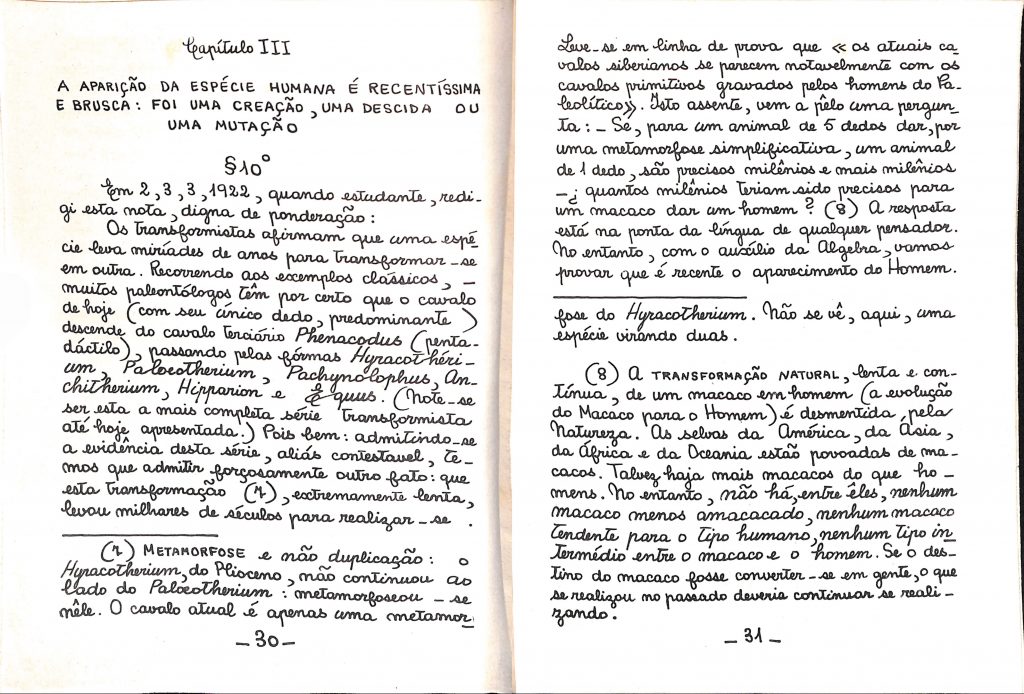 Capítulo III
A APARIÇÃO DA ESPÉCIE HUMANA É RECENTÍSSIMA
E BRUSCA: FOI UMA CREAÇÃO, UMA DESCIDA OU
UMA MUTAÇÃO
§10º
Em 2, 3, 3, 1922, quando estudante, redi-
gi esta nota, digna de ponderação:
Os transformistas afirmam que uma espé-
cie leva miríades de anos para transformar-se
em outra. Recorrendo aos exemplos clássicos, -
muitos paleontólogos têm por certo que o cavalo
de hoje (com seu único dedo, predominante)
descende do cavalo terciário Phenacodus (penta-
dáctilo), passando pelas fórmas Hyracothéri-
um, Palœotherium, Pachynolophus, An-
chitherium, Hipparion e Équus. (Note-se
ser esta a mais completa série transformista
até hoje apresentada.) Pois bem: admitindo-se
a evidência desta série, aliás contestavel, te-
mos que admitir forçosamente outro fato: que
esta transformação (7), extremamente lenta,
levou milhares de séculos para realizar-se.
(7) METAMORFOSE e não duplicação: o
Hyracotherium, do Plioceno, não continuou ao
lado do Palœotherium: metamorfoseou-se
nêle. O cavalo atual é apenas uma metamor-
-30-
Leve-se em linha de prova que « os atuais ca-
valos siberianos se parecem notavelmente com os
cavalos primitivos gravados pelos homens do Pa-
leolítico». Isto assente, vem a pêlo uma pergun-
ta: - Se, para um animal de 5 dedos dar, por
uma metamorfose simplificativa, um animal
de 1 dedo, são precisos milênios e mais milênios
-¿ quantos milênios teriam sido precisos para
um macaco dar um homem? (8) A resposta
está na ponta da língua de qualquer pensador.
No entanto, com o auxílio da Álgebra, vamos
provar que é recente o aparecimento do Homem.
fose do Hyracotherium. Não se vê, aqui, uma
espécie virando duas.
(8) A TRANSFORMAÇÃO NATURAL, lenta e con-
tínua, de um macaco em homem (a evolução
do Macaco para o Homem) é desmentida pela
Natureza. As selvas da América, da Ásia,
da África e da Oceania estão povoadas de ma-
cacos. Talvez haja mais macacos do que ho-
mens. No entanto, não há, entre êles, nenhum
macaco menos amacacado, nenhum macaco
tendente para o tipo humano, nenhum tipo in-
termédio entre o macaco e o homem. Se o des-
tino do macaco fosse converter-se em gente, o que
se realizou no passado deveria continuar se reali-
zando.
-31-